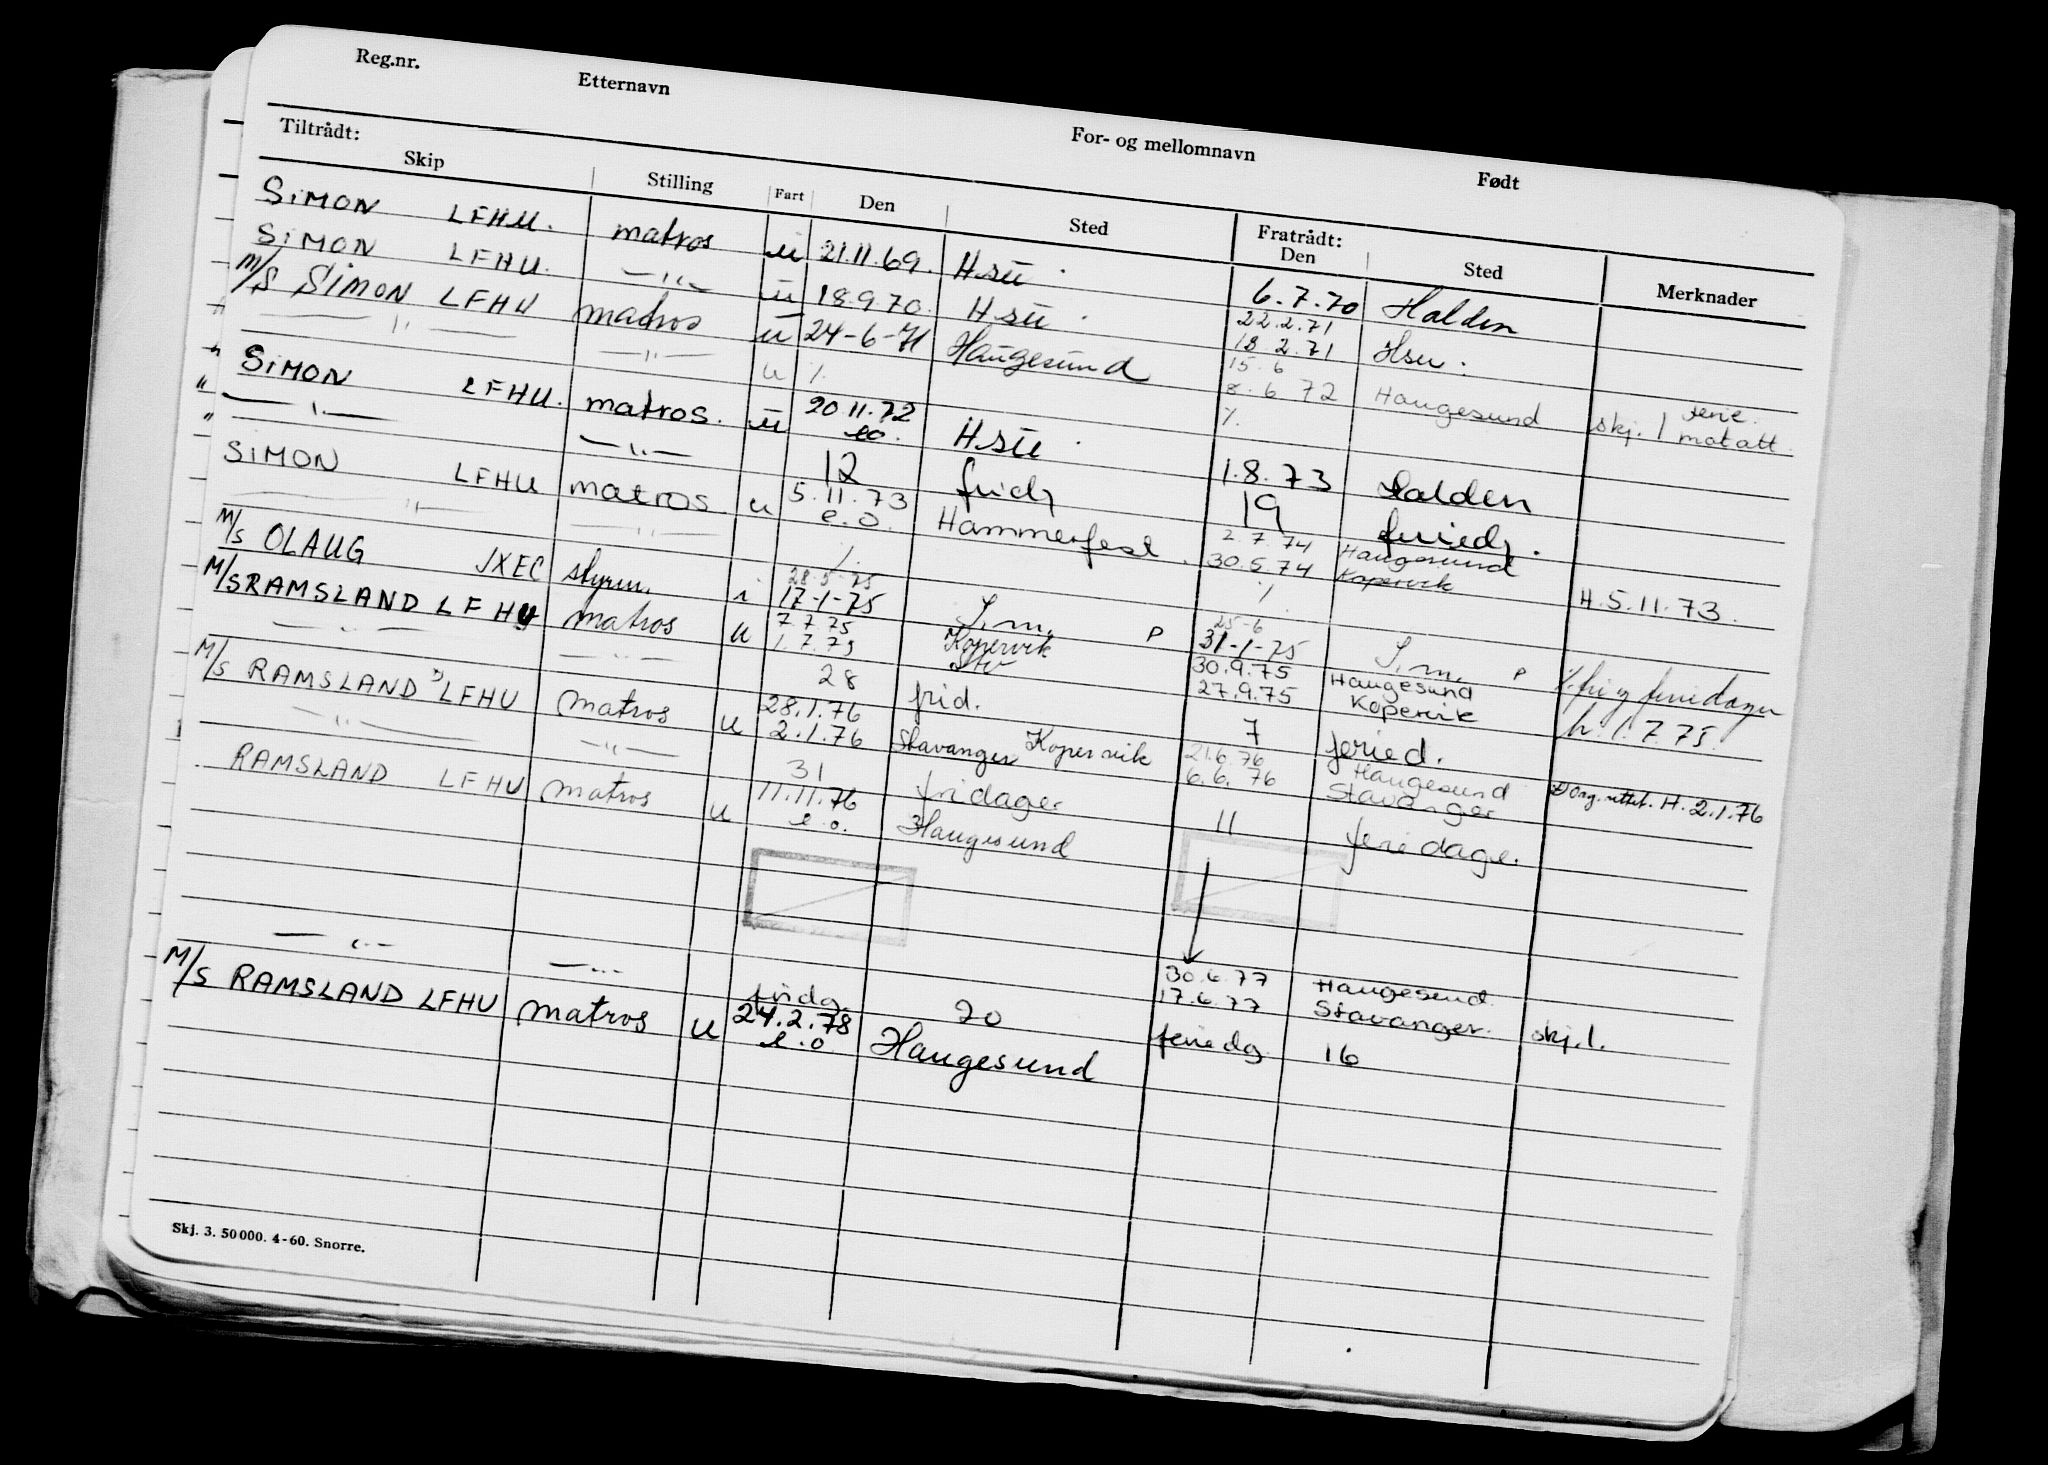 Reg.nr. Etternavn For- og mellomnavn Født
Tiltrådt: Fratrådt:
Skip Stilling Fart Den Sted Den Sted Merknader
SIMON LFHU. matros u 21.11.69. Hsu. 6.7.70 Halden
SIMON LFHU. —"— u 18.9.70. Hsu. 22.2.71
18.2.71 Hsu.
M/S SIMON LFHU matros u 24-6-71 Haugesund 15.6
8.6 72 Haugesund skj. 1 ferie. mot att.
—"— —"— u % %
SIMON LFHU. matros. u 20.11.72 e.o. Hsu. 1.8.73 Halden
—"— —"— 12 frid, 19 feried,.
SIMON LFHU matros. u 5.11.73 e.o. Hammerfest. 2.7.74 Haugesund
30.5.74 Kopervik H.5.11.73.
—"— —"— % %
M/S OLAUG JXEC styrm. i 28.5-75
17-1-75 S.m. P 25-6
31-1-75 S.m. P
M/S RAMSLAND LFHU matros u 7.7.75 Kopervik 30.9.75 Haugesund
1.7.75 Stv 27.9.75 Kopervik h. 1.7.75.
—"— —"— 28 frid. 7 feried.
M/S RAMSLAND LFHU matros u 28.1.76 Kopervik 21.6.76 Haugesund
2.1.76 Stavanger 6.6.76 Stavanger H. 2.1.76
—"— —"— 31 fridager 11 feriedage.
RAMSLAND LFHU matros u 11.11.76 e.o. Haugesund
30.6.77 Haugesund.
17.6.77 Stavanger. skj.1.
—"— —"— fridg. 70 feriedg 16
M/S RAMSLAND LFHU matros u 24.2.78 e.o Haugesund
Skj. 3. 50000. 4-60. Snorre.